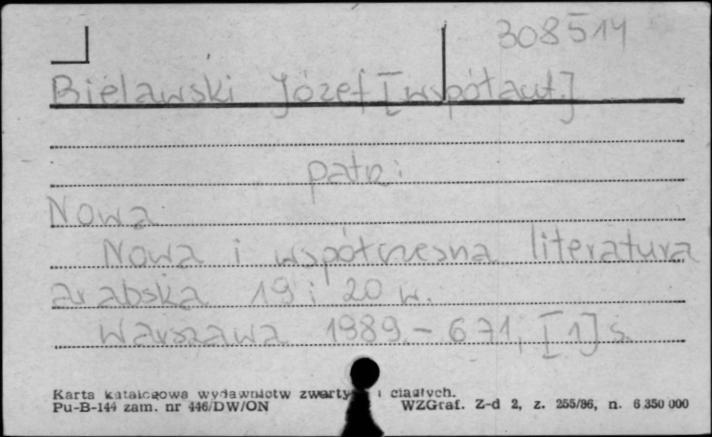 308514
Bielawski Józef [współaut.]
patrz:
Nowa
Nowa i współczesna literatura
arabska 19 i 20 w.
Warszawa 1989. - 671, [1] s.
Karta katalogowa wydawnictw zwarty i ciągłych.
Pu-B-144 zam. nr 446/DW/ON WZGraf. Z-d 2, z. 255/86, n. 6 350 000